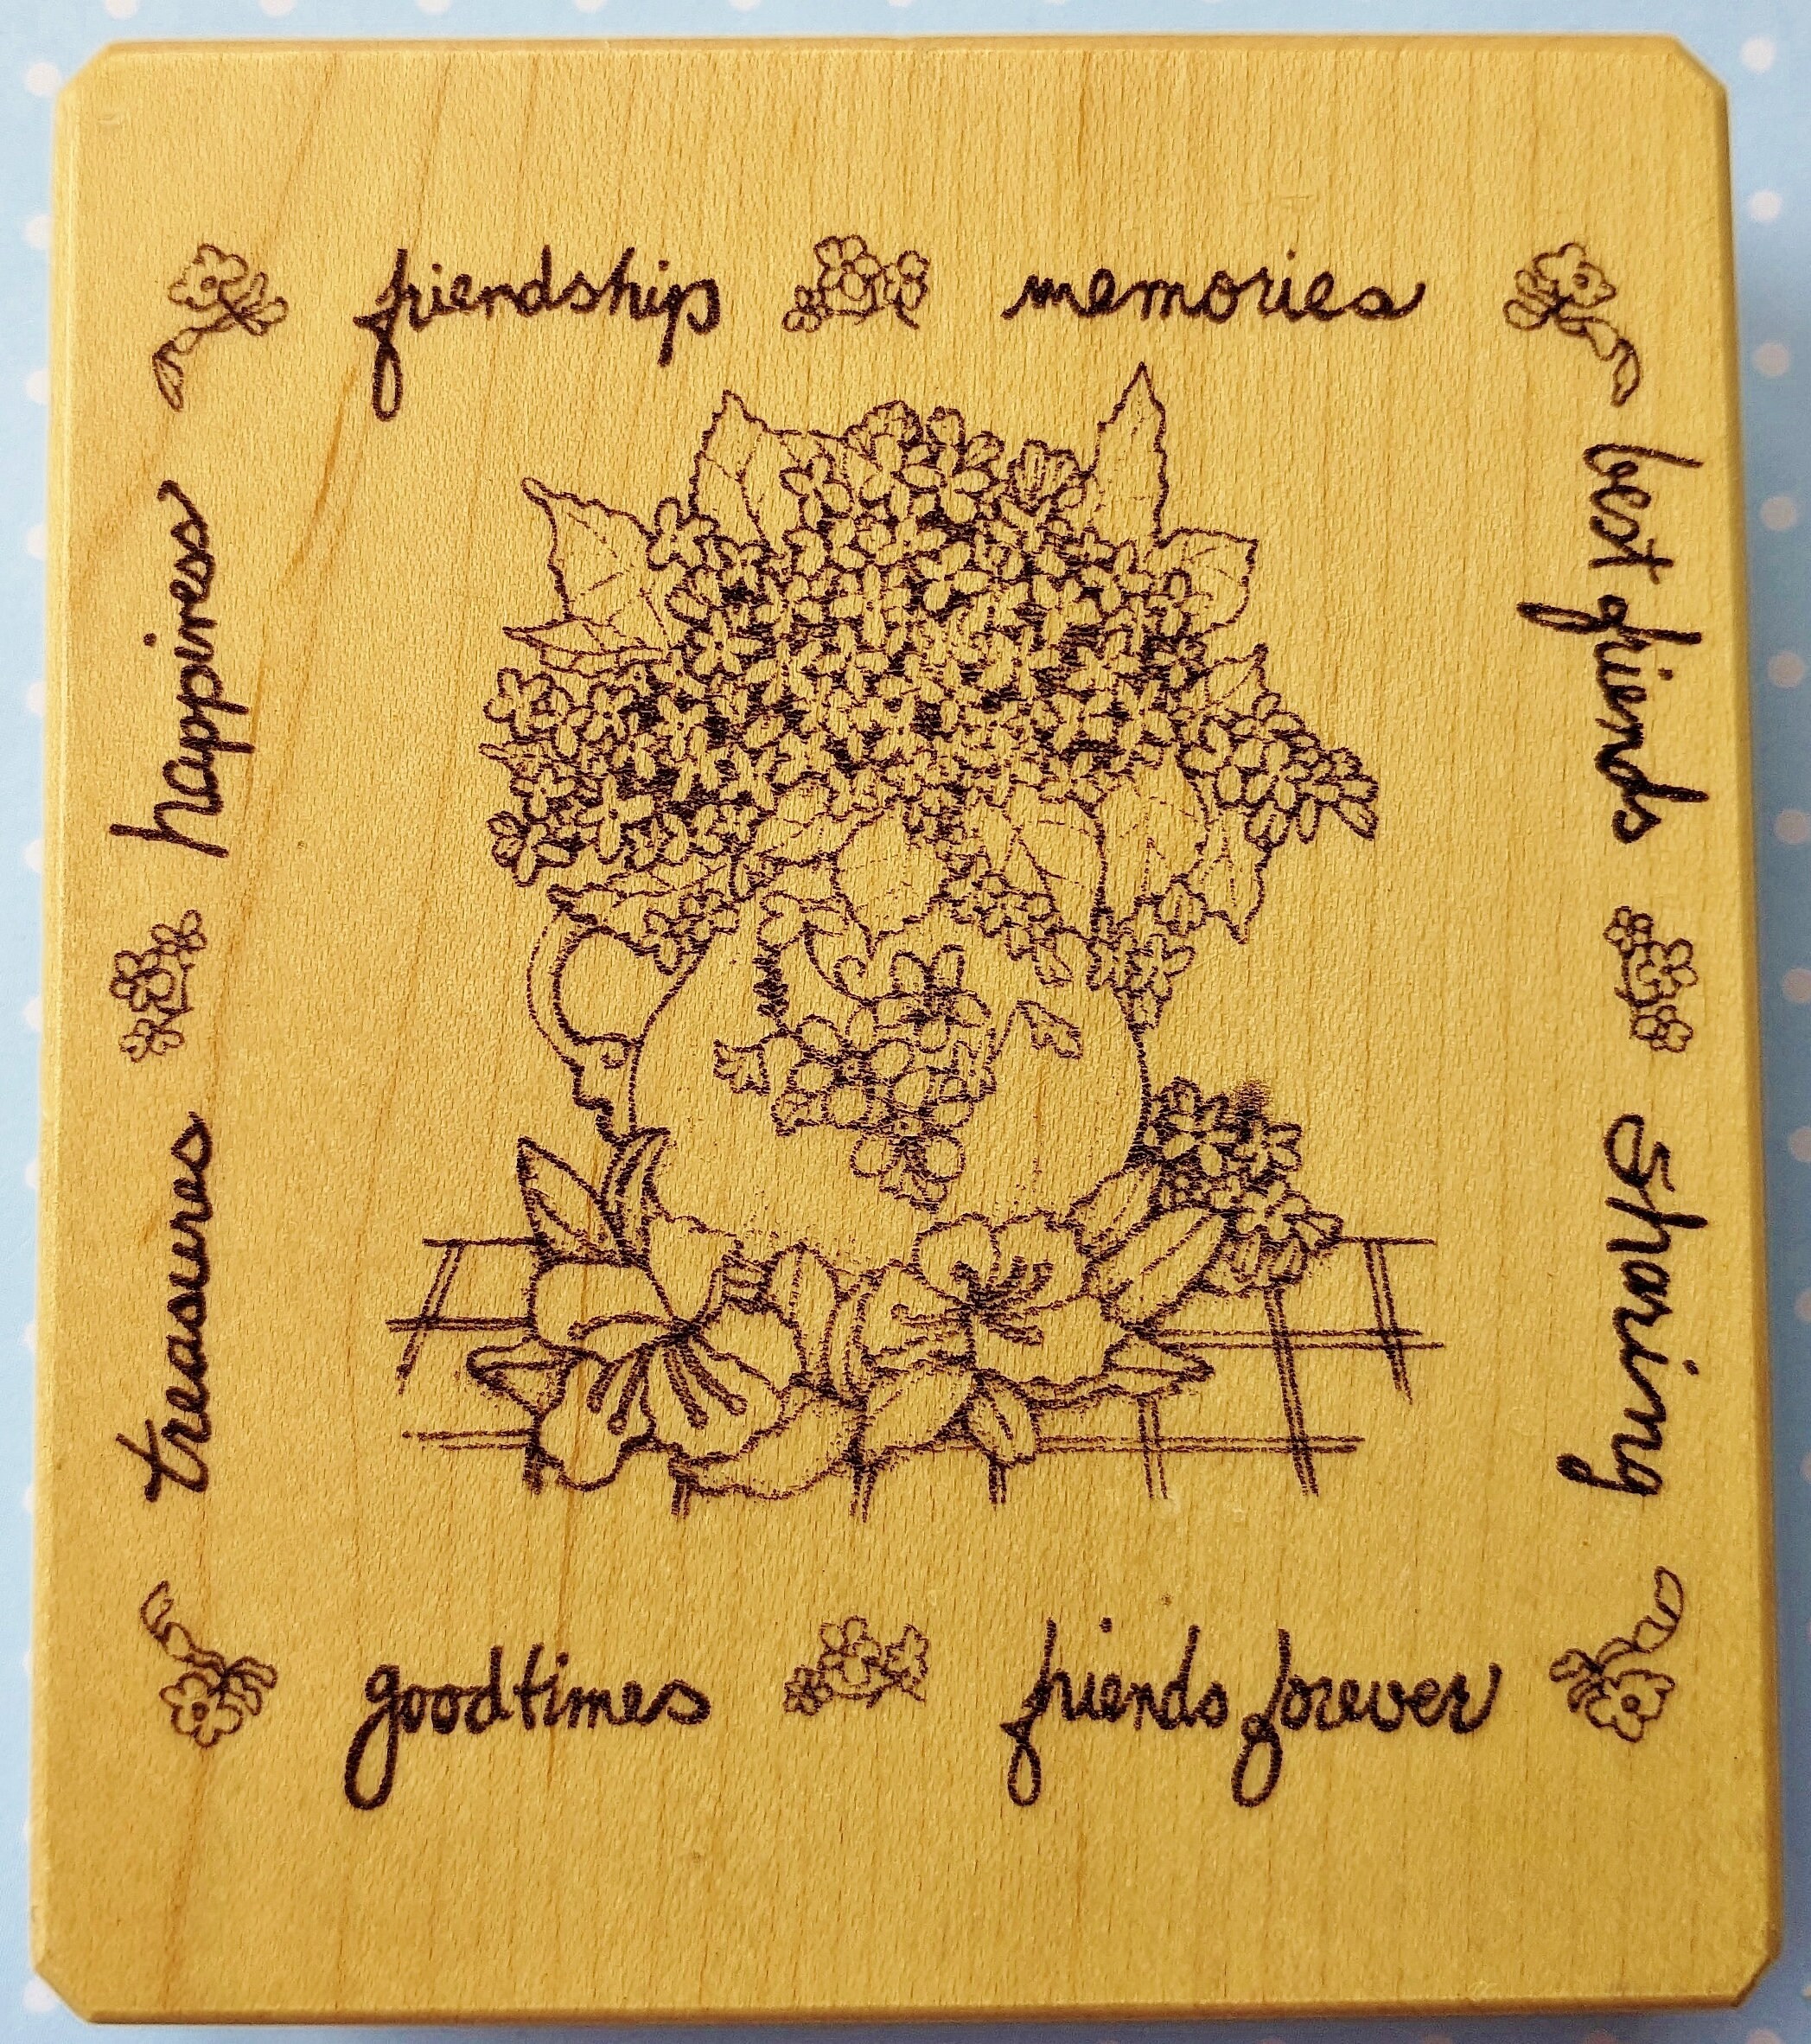 friendship memories
best friends
sharing
happiness
treasures
good times friends forever